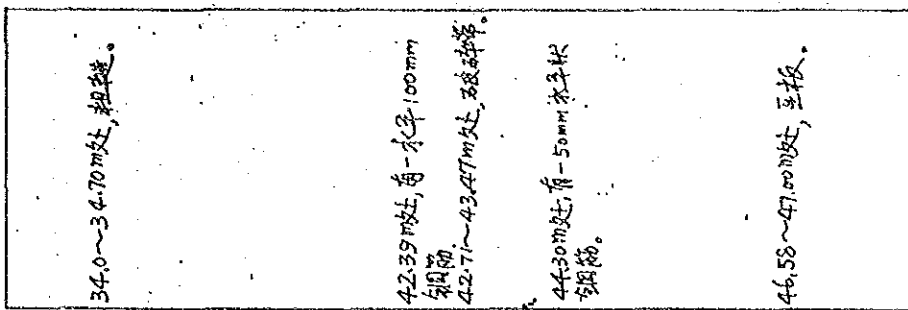 34.0~34.70m处,粗糙。
42.39m处,有一水平100mm
钢筋.
42.71~43.47m处,破碎带。
44.30m处,有一50mm水平状
钢筋。
46.58~47.00m处,豆板。